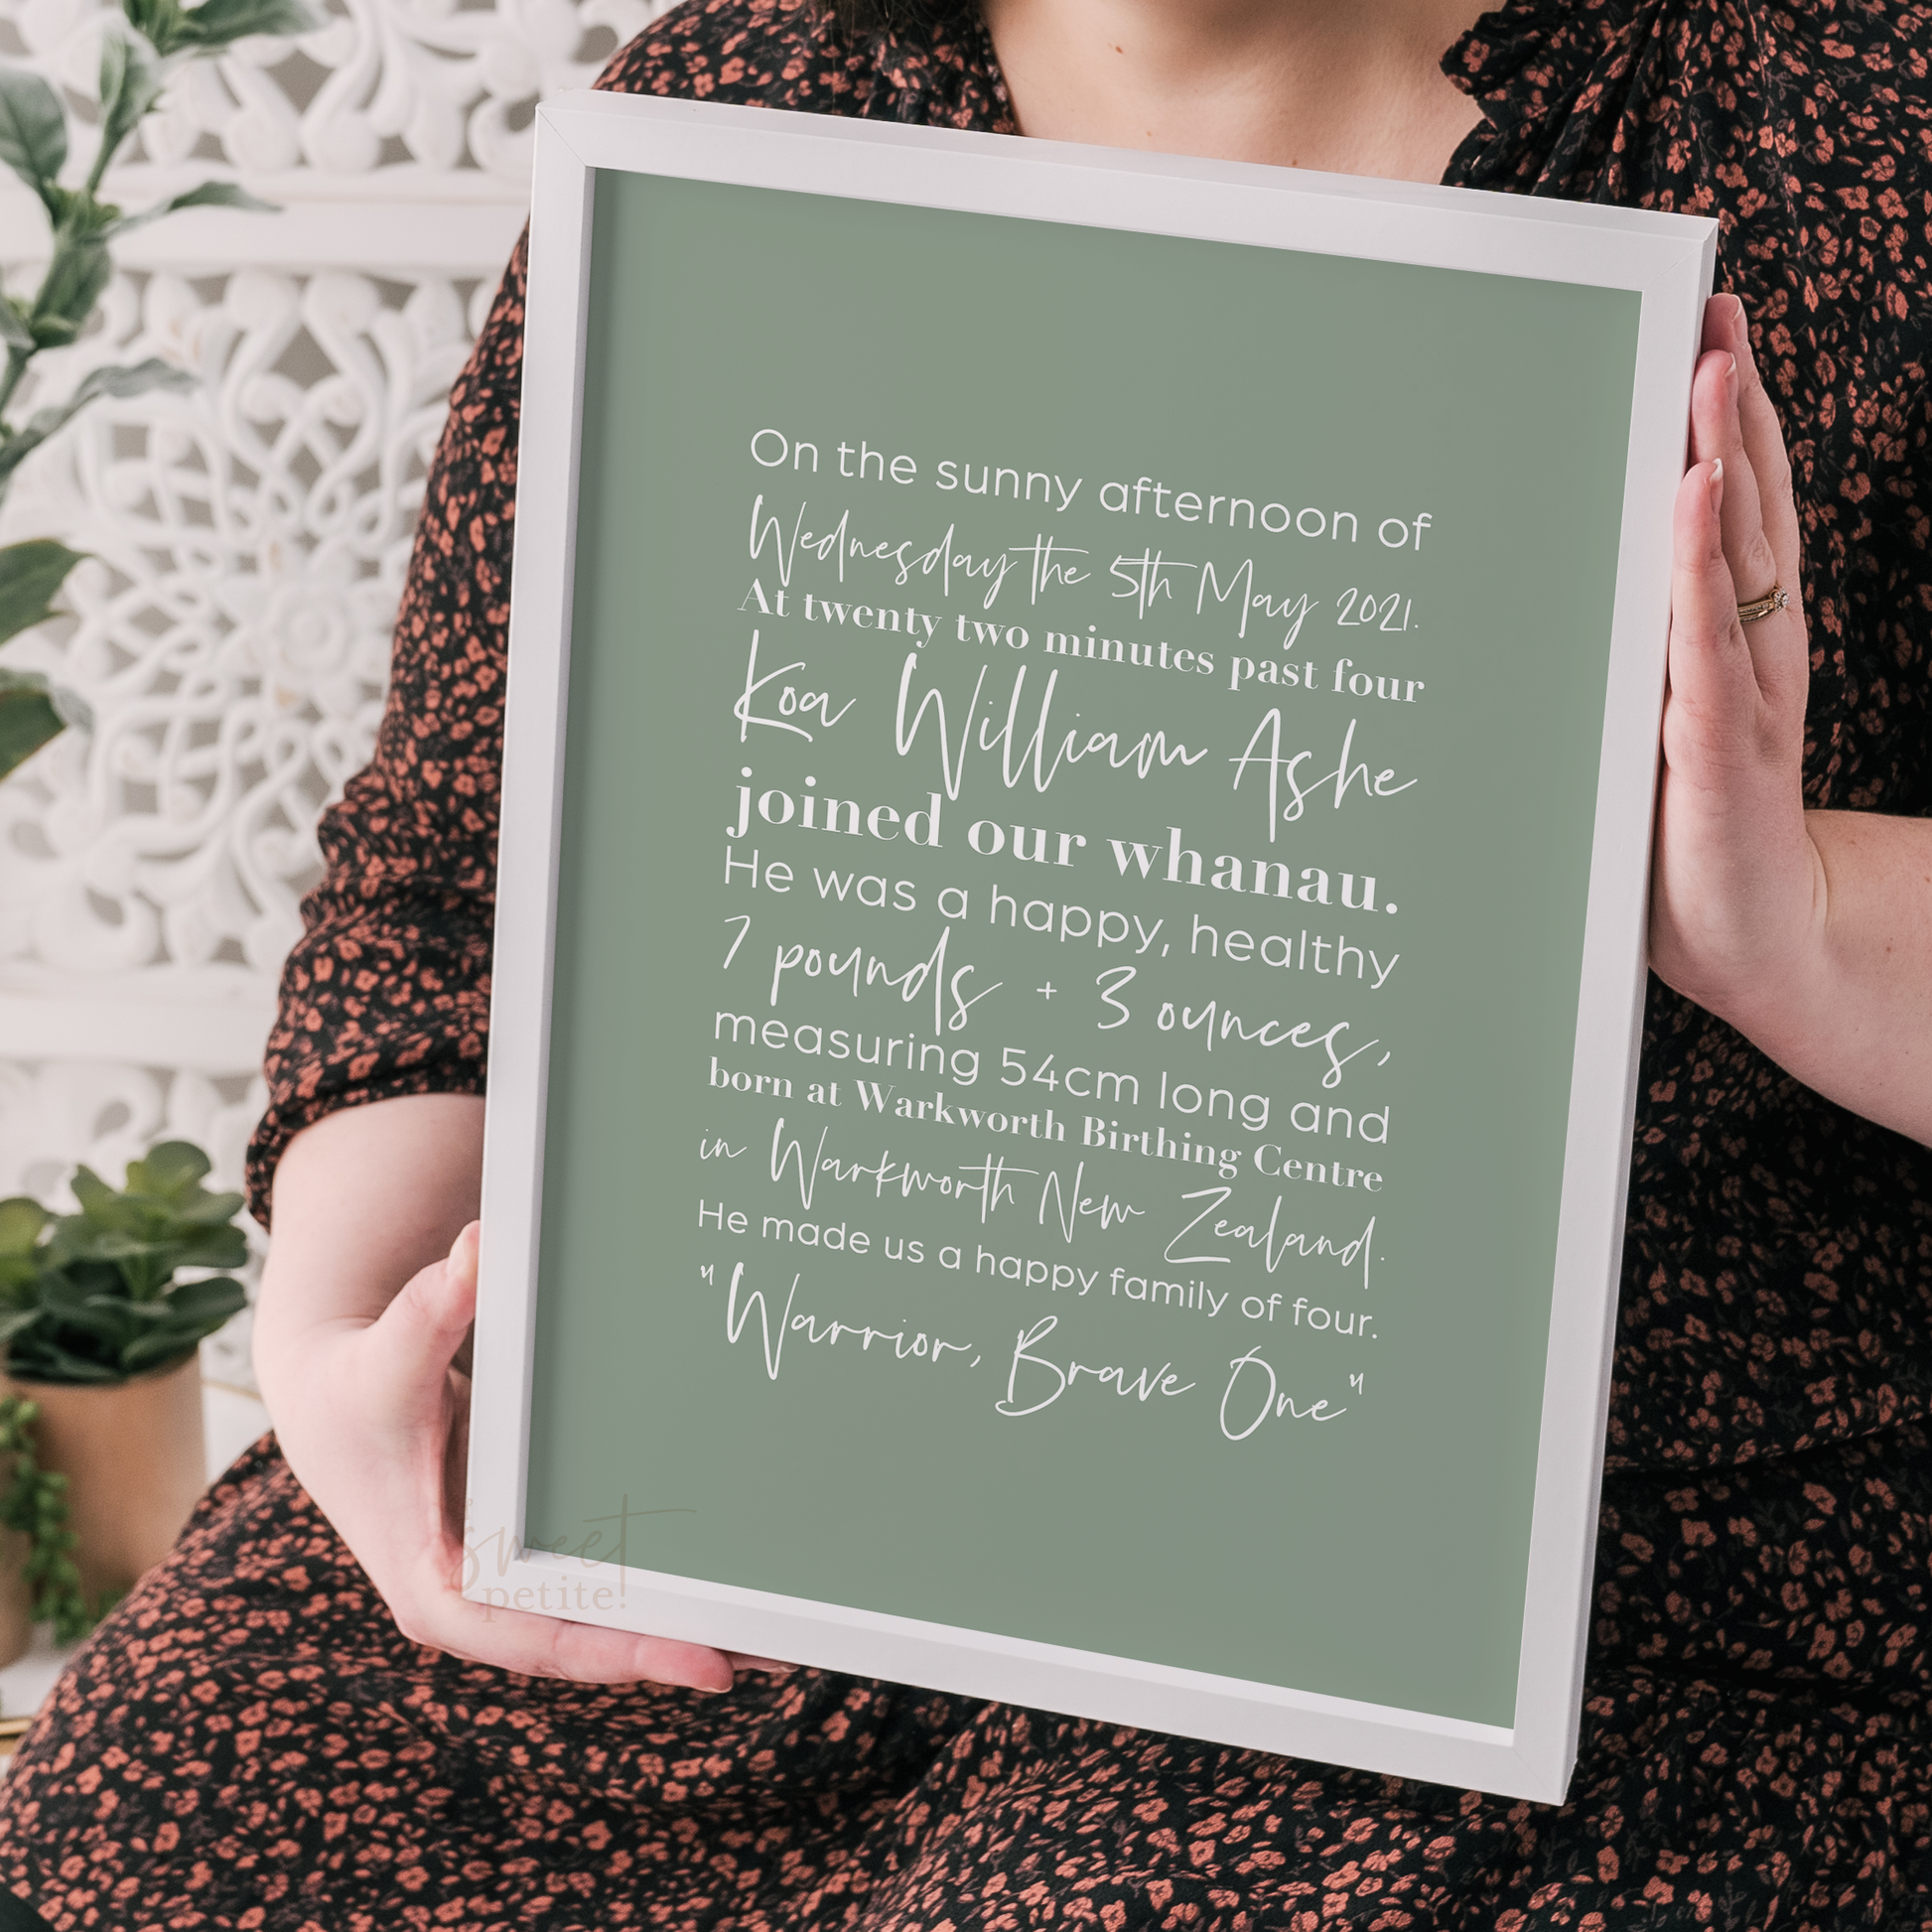 On the sunny afternoon of
Wednesday the 5th May 2021.
At twenty two minutes past four
Koa William Ashe
joined our whanau.
He was a happy, healthy
7 pounds + 3 ounces,
measuring 54cm long and
born at Warkworth Birthing Centre
in Warkworth New Zealand.
He made us a happy family of four.
"Warrior, Brave One"
sweet
petite!